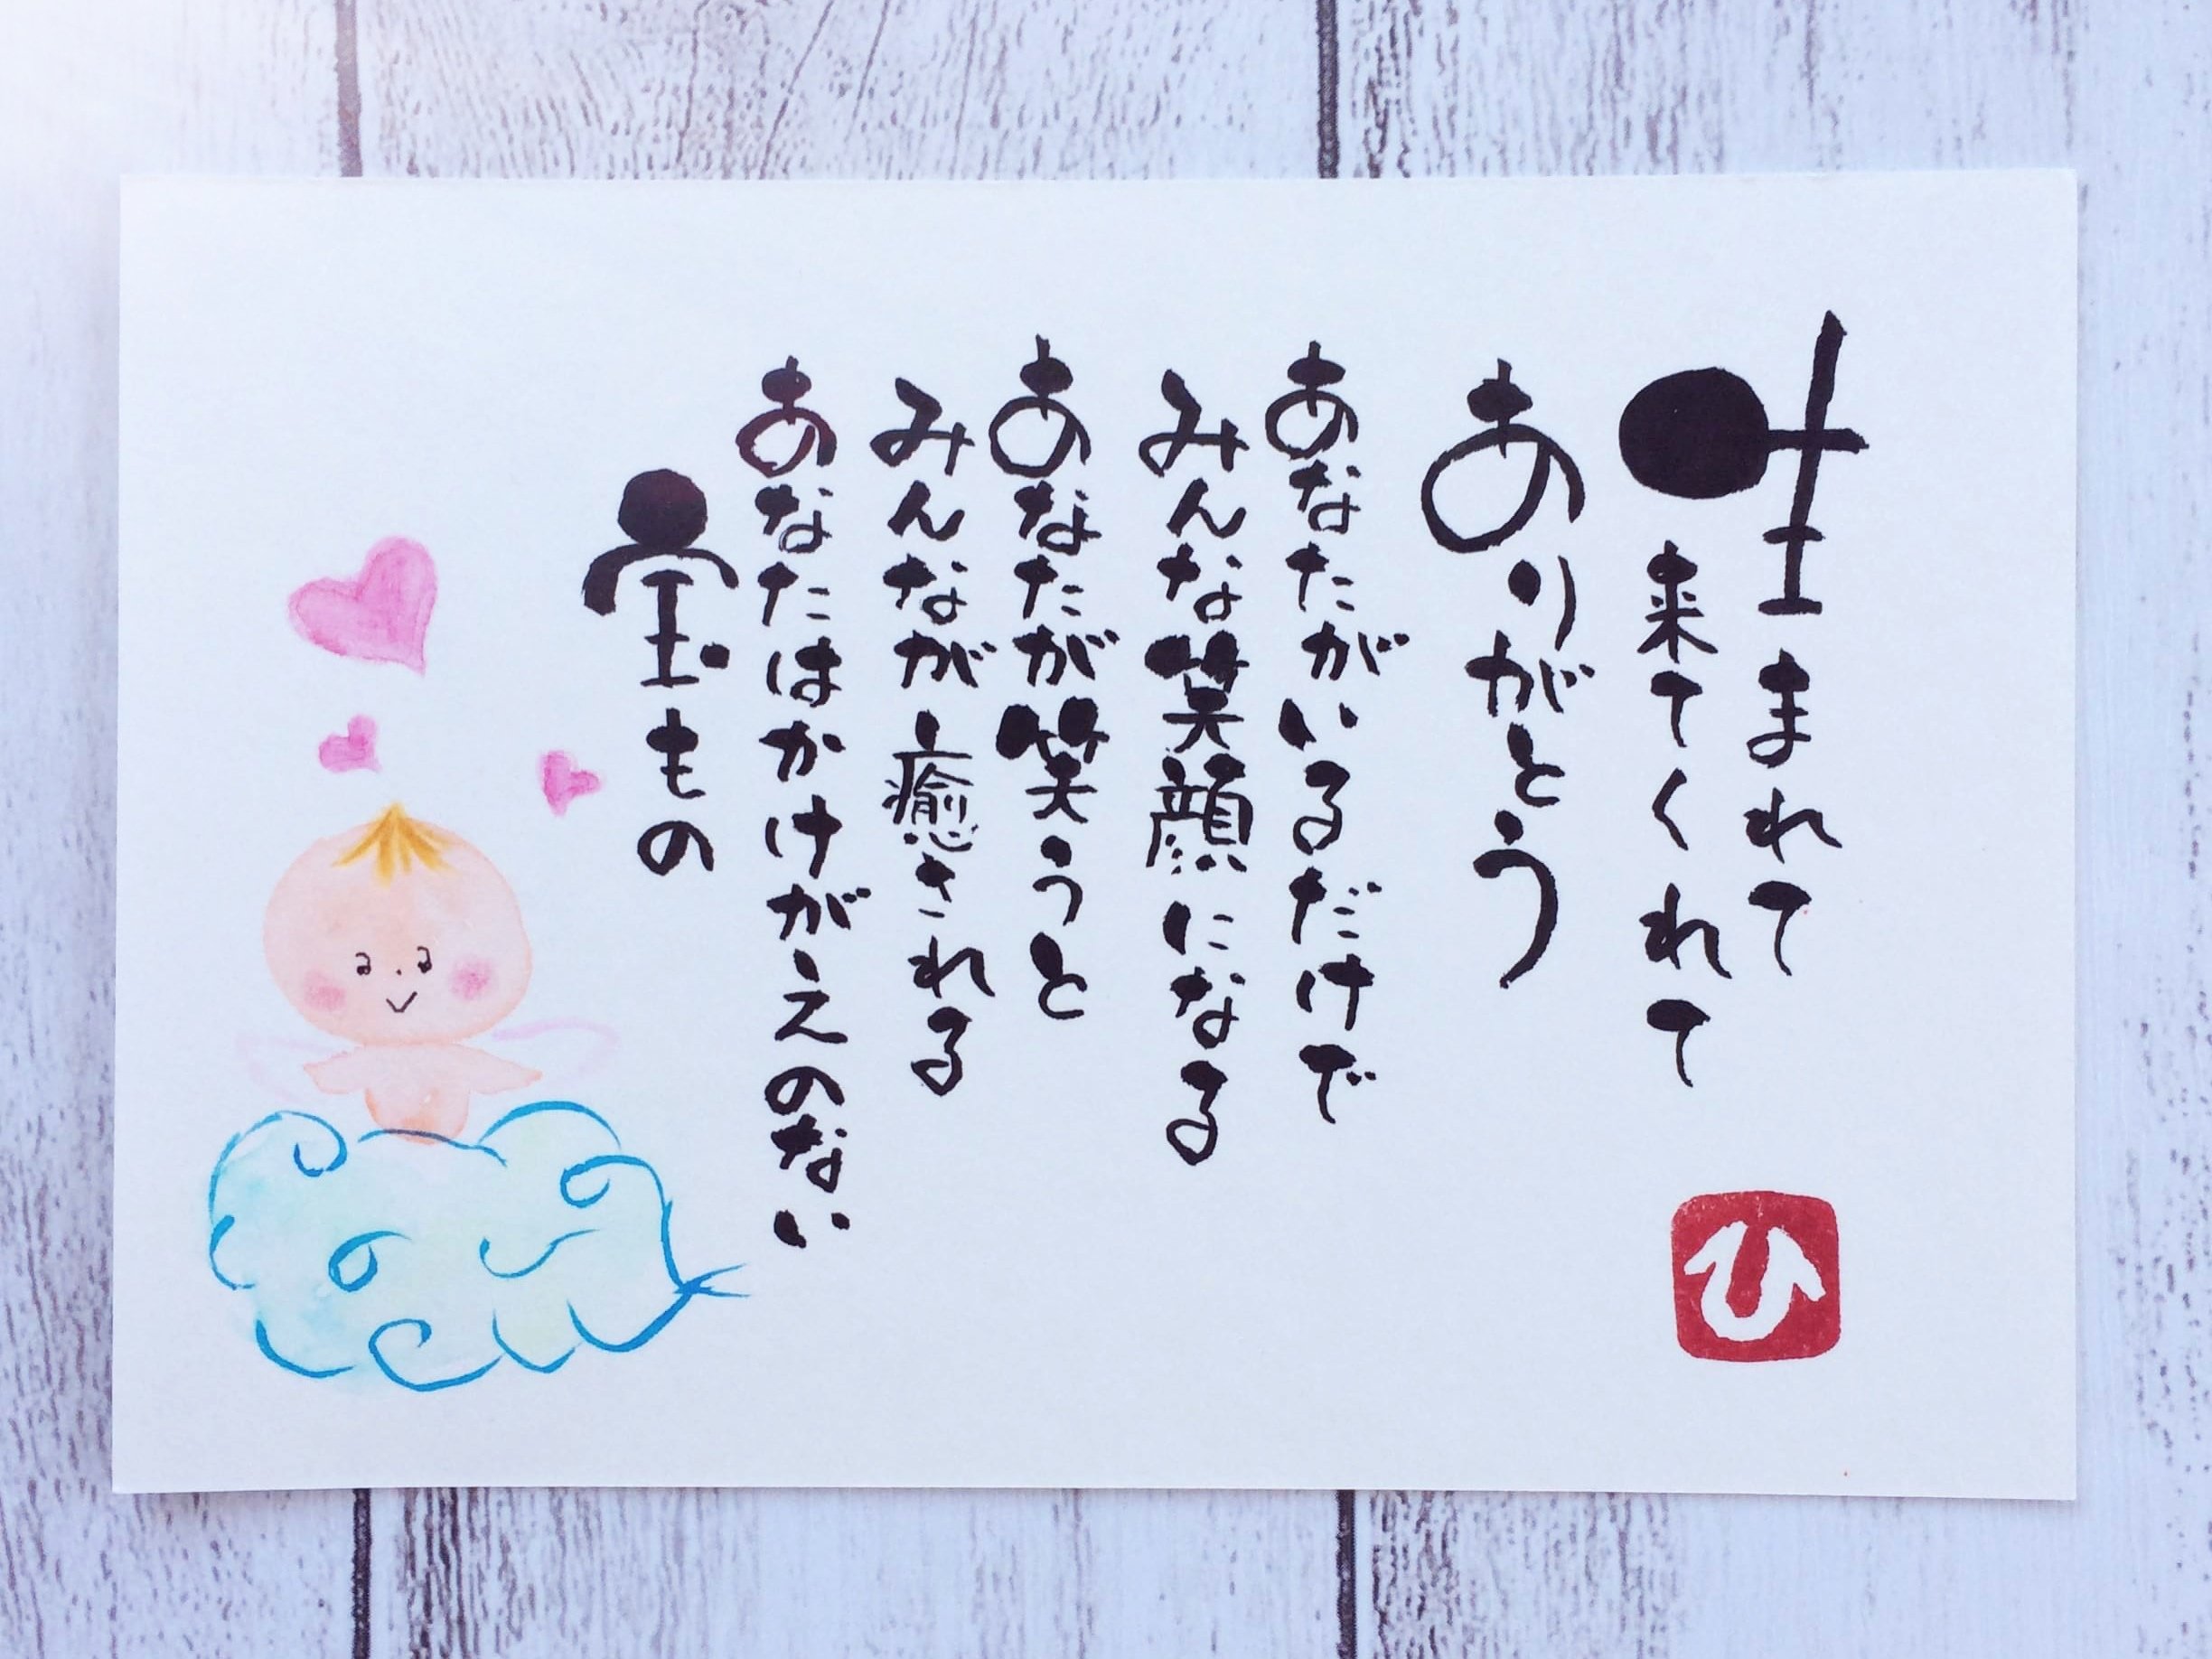 生まれて
来てくれて
ありがとう
あなたがいるだけで
みんな笑顔になる
あなたが笑うと
みんなが癒される
あなたはかけがえのない
宝もの
ひ